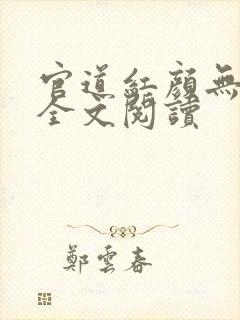 官道紅顏無
全文閱讀
鄭雲春